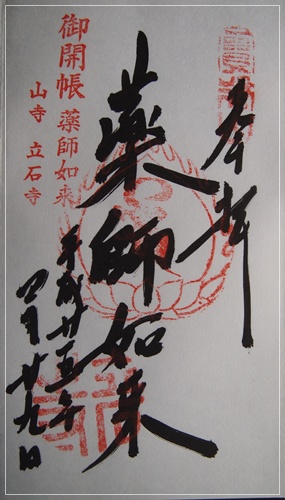 奉拝
薬師如来
御開帳 薬師如来
山寺 立石寺
平成廿五年
四月廿九日